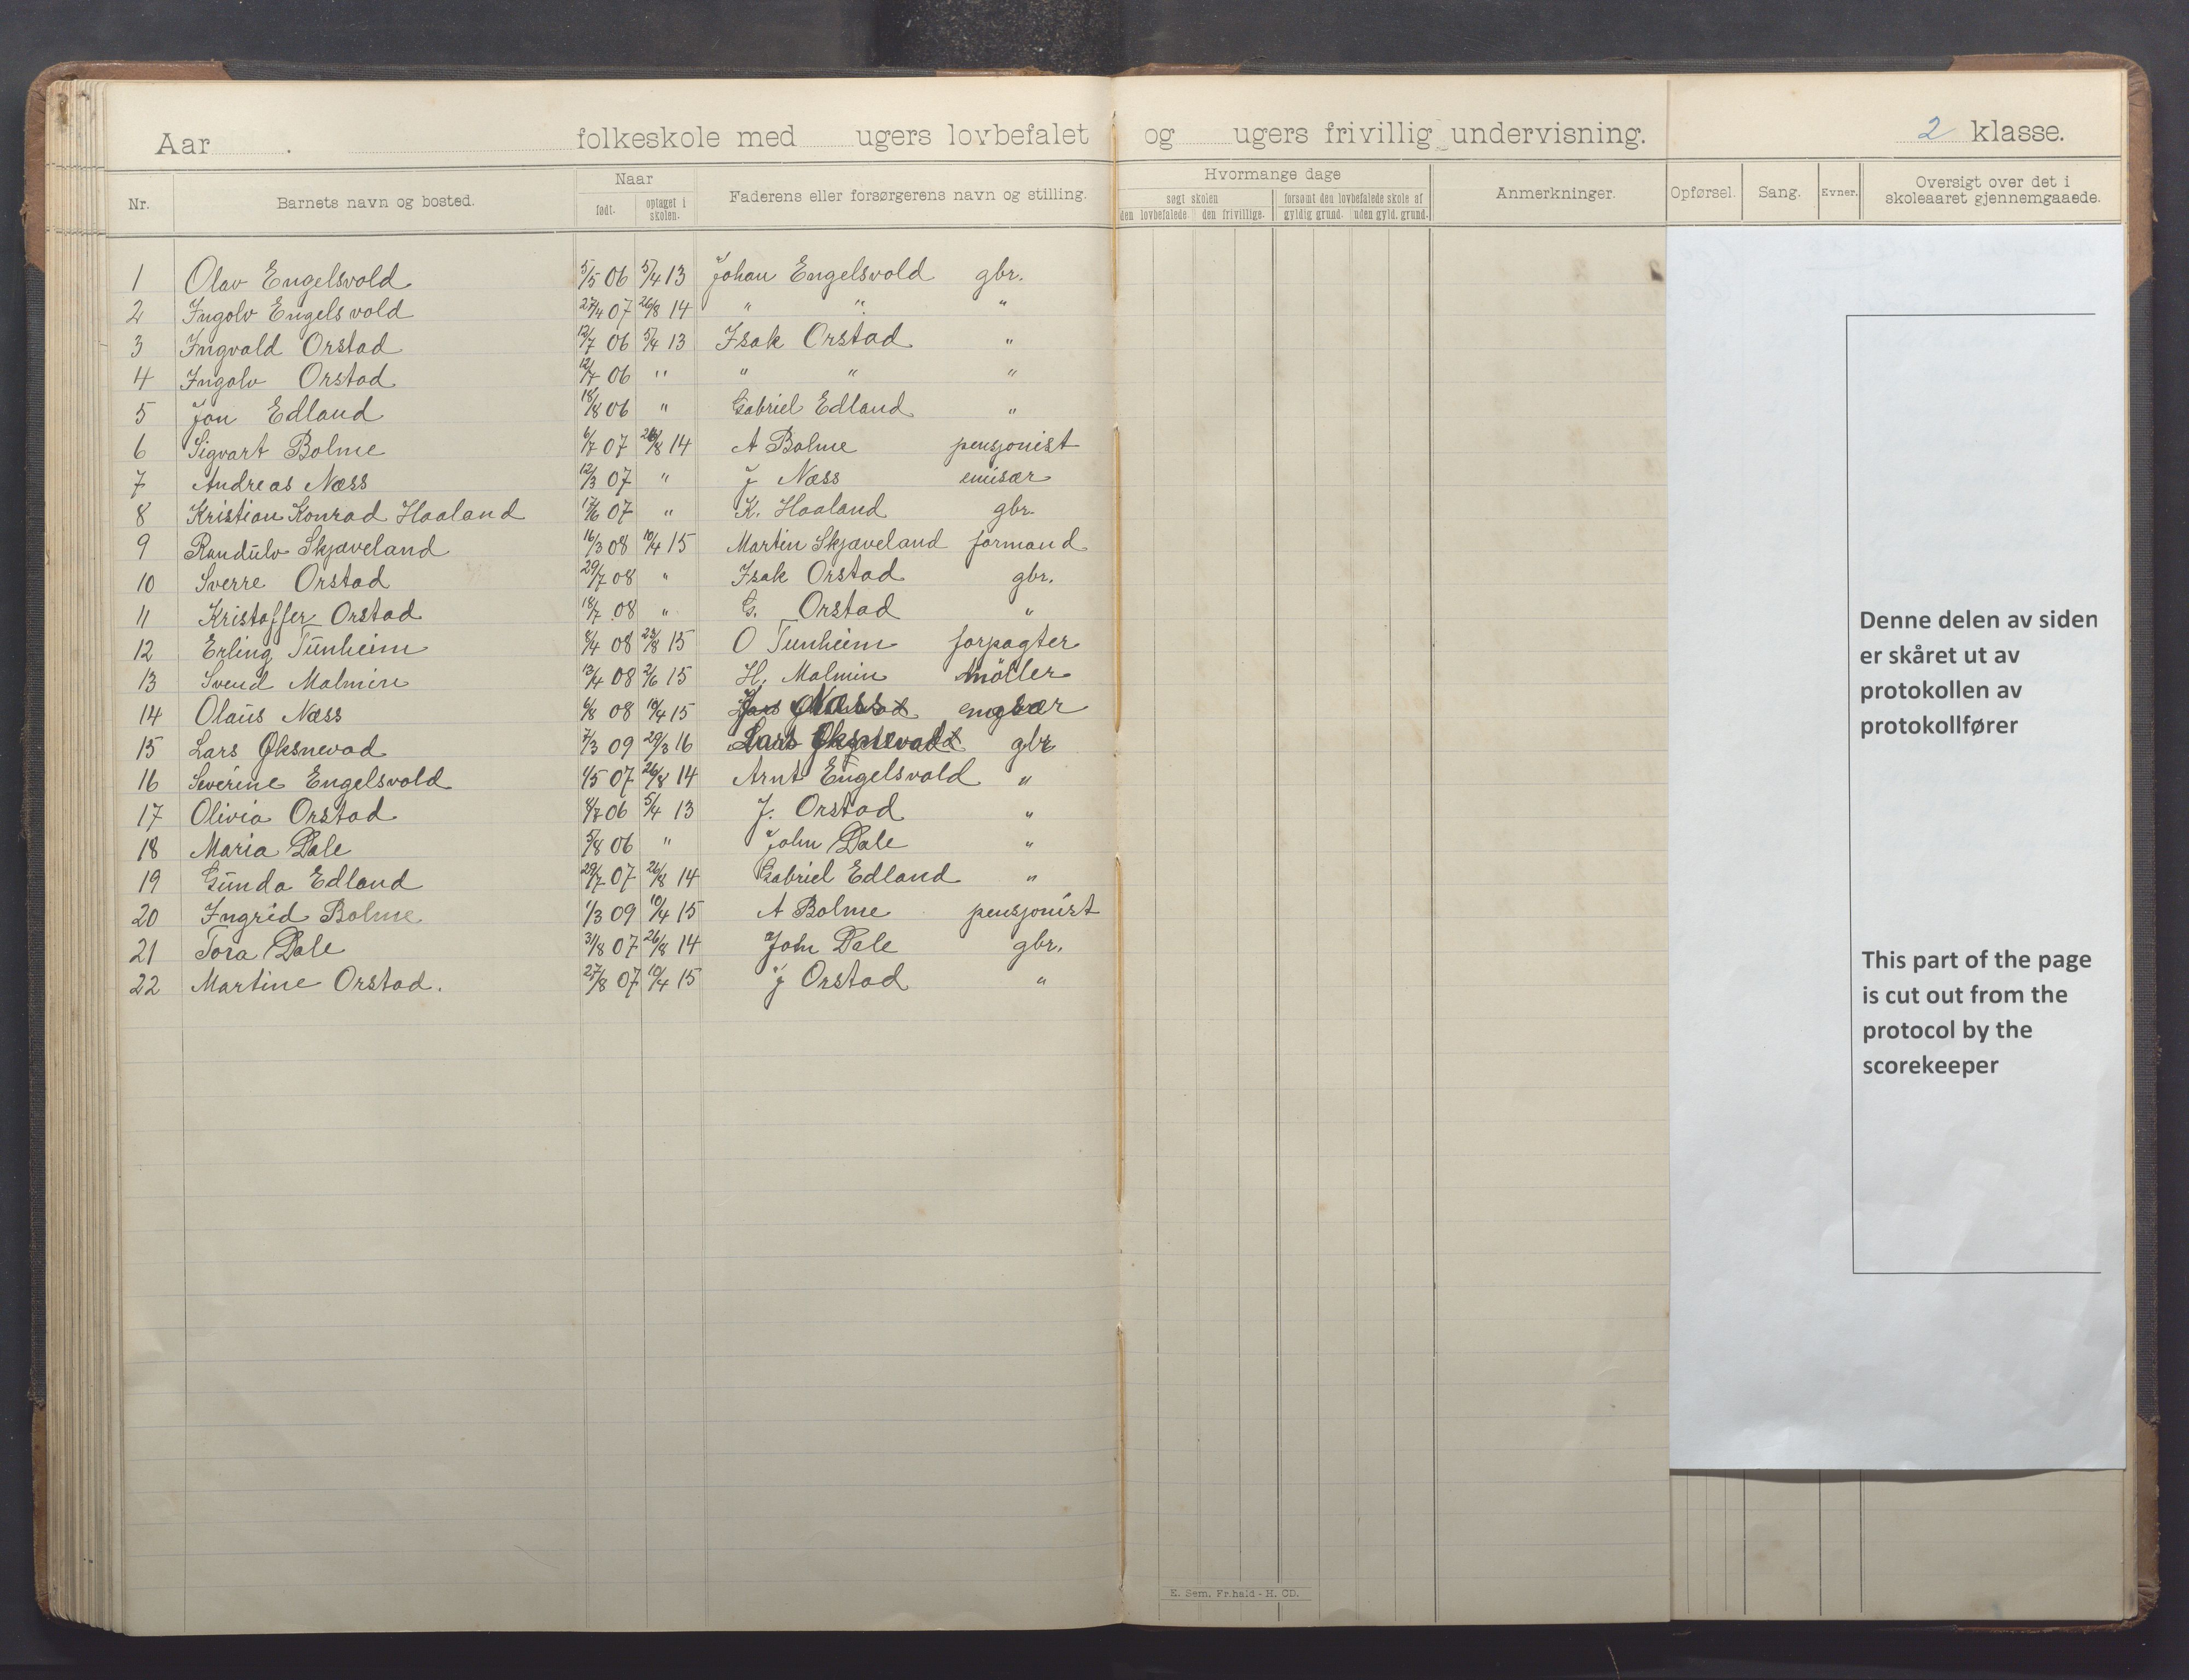 Aar . folkeskole med ugers lovbefalet og ugers frivillig undervisning. 2 klasse.
Nr. Barnets navn og bosted. Naar født. optaget i skolen. Faderens eller forsørgerens navn og stilling. Hvormange dage søgt skolen den lovbefalede den frivillige. forsømt den lovbefalede skole af gyldig grund. uden gyld. grund. Anmerkninger. Opførsel. Sang. Evner. Oversigt over det i skoleaaret gjennemgaaede.
1 Olav Engelsvold 5/5 06 5/4 13 Johan Engelsvold gbr.
2 Ingolv Engelsvold 27/4 07 26/8 14 " " "
3 Ingvald Orstad 12/7 06 5/4 13 Isak Orstad "
4 Ingolv Orstad 12/7 06 " " " "
5 Jon Edland 18/8 06 " Gabriel Edland "
6 Sigvart Bolme 6/7 07 26/8 14 A Bolme pensjonist
7 Andreas Næss 12/3 07 " J Næss emisær
8 Kristian Konrad Haaland 17/6 07 " K. Haaland gbr.
9 Randulv Skjæveland 16/3 08 10/4 15 Martin Skjæveland formand
10 Sverre Orstad 29/7 08 " Isak Orstad gbr.
11 Kristoffer Orstad 18/7 08 " G. Orstad "
12 Erling Tunheim 8/4 08 23/8 15 O Tunheim forpagter
13 Svend Malmin 13/4 08 2/6 15 H. Malmin möller
14 Olaus Næss 6/8 08 10/4 15 Næss
15 Lars Øksnevad 7/3 09 29/3 16 Lars Øksnevad gbr
16 Severine Engelsvold 1/5 07 26/8 14 Arnt Engelsvold "
17 Olivia Orstad 8/7 06 5/4 13 J. Orstad "
18 Maria Dale 5/8 06 " John Dale "
19 Gunda Edland 29/7 07 26/8 14 Gabriel Edland "
20 Ingrid Bolme 1/3 09 10/4 15 A Bolme pensjonist
21 Tora Dale 3/8 07 26/8 14 John Dale gbr.
22 Martine Orstad. 27/8 07 10/4 15 J Orstad "
Denne delen av siden
er skåret ut av
protokollen av
protokollfører
This part of the page
is cut out from the
protocol by the
scorekeeper
E. Sem, Fr.hald - H. CD.